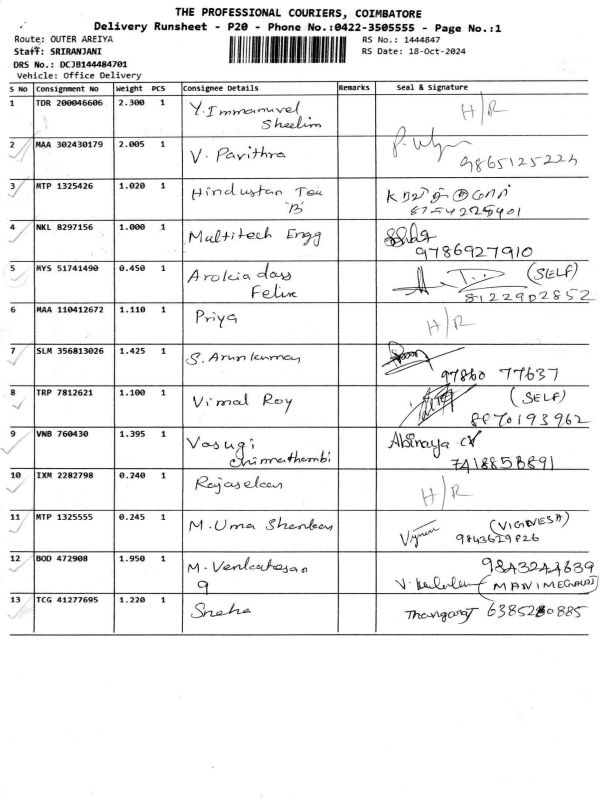 THE PROFESSIONAL COURIERS, COIMBATORE
Delivery Runsheet - P20 - Phone No.:0422-3505555 - Page No.:1
Route: OUTER AREIYA RS No.: 1444847
Staff: SRIRANJANI RS Date: 18-Oct-2024
DRS No.: DCJB144484701
Vehicle: Office Delivery
S No Consignment No Weight PCS Consignee Details Remarks Seal & Signature
1 TDR 200046606 2.300 1 Y. Immanuvel H/R
Sheelim
2 MAA 302430179 2.005 1 V. Pavithra
3 MTP 1325426 1.020 1 Hindustan Tea
'B' 8754225401
4 NKL 8297156 1.000 1 Multitech Engg
9786927910
5 MYS 51741490 0.450 1 Arokia dass (SELF)
Felix 8122902852
6 MAA 110412672 1.110 1 Priya H/R
7 SLM 356813026 1.425 1 S. Arunkumar
97860 77637
8 TRP 7812621 1.100 1 Vimal Roy (SELF)
8870193962
9 VNB 760430 1.395 1 Vasugi Abinaya
Chinnathambi 7418858891
10 IXM 2282798 0.240 1 Rajasekar H/R
11 MTP 1325555 0.245 1 M. Uma Shankar (VIGNESH)
9843629826
12 BOD 472908 1.950 1 M. Venkatesan 9843244639
9
13 TCG 41277695 1.220 1 Sneha Thangaraj 6385280885